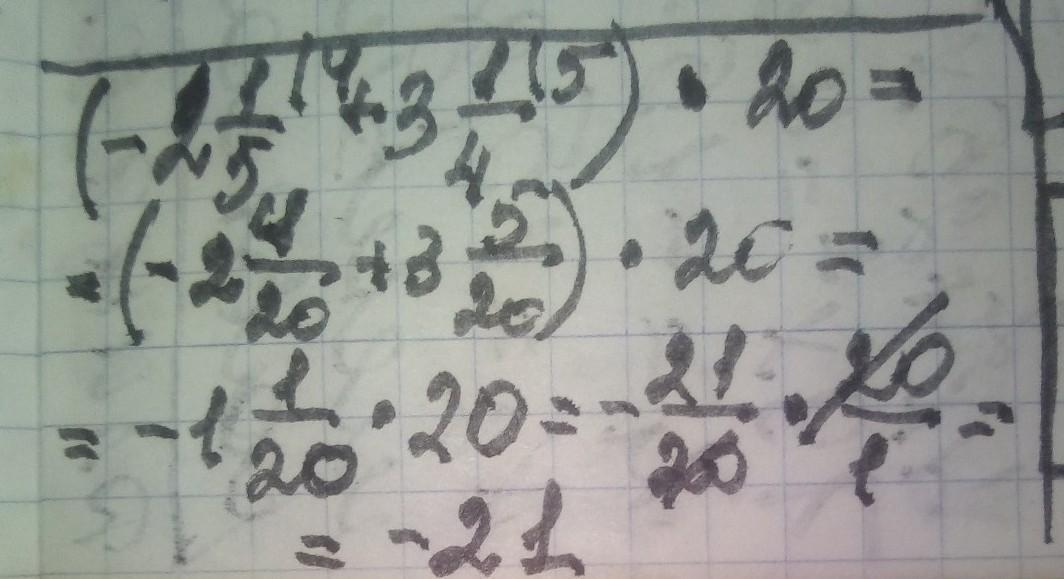 (-2 1/5 (4 + 3 1/4 (5) • 20 =
= (-2 4/20 + 3 5/20) • 20 =
= -1 1/20 • 20 = - 21/20 • 20/1 =
= -21